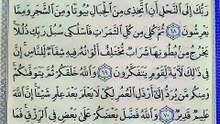 رَبُّكَ إِلَى ٱلنَّحْلِ أَنِ ٱتَّخِذِى مِنَ ٱلْجِبَالِ بُيُوتًا وَمِنَ ٱلشَّجَرِ وَمِمَّا
يَعْرِشُونَ ٦٨ ثُمَّ كُلِى مِن كُلِّ ٱلثَّمَرَٰتِ فَٱسْلُكِى سُبُلَ رَبِّكِ ذُلُلًا
يَخْرُجُ مِنۢ بُطُونِهَا شَرَابٌ مُّخْتَلِفٌ أَلْوَٰنُهُۥ فِيهِ شِفَآءٌ لِّلنَّاسِ إِنَّ
فِى ذَٰلِكَ لَءَايَةً لِّقَوْمٍ يَتَفَكَّرُونَ ٦٩ وَٱللَّهُ خَلَقَكُمْ ثُمَّ يَتَوَفَّىٰكُمْ
وَمِنكُم مَّن يُرَدُّ إِلَىٰٓ أَرْذَلِ ٱلْعُمُرِ لِكَىْ لَا يَعْلَمَ بَعْدَ عِلْمٍ شَيْـًٔا إِنَّ ٱللَّهَ
عَلِيمٌ قَدِيرٌ ٧٠ وَٱللَّهُ فَضَّلَ بَعْضَكُمْ عَلَىٰ بَعْضٍ فِى